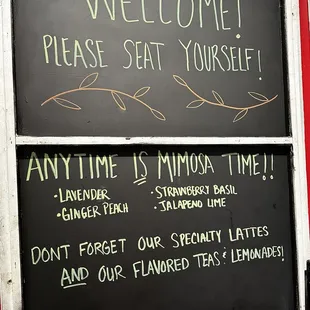 WELCOME!
PLEASE SEAT YOURSELF!
ANYTIME IS MIMOSA TIME!!
•LAVENDER •STRAWBERRY BASIL
•GINGER PEACH •JALAPENO LIME
DONT FORGET OUR SPECIALTY LATTES
AND OUR FLAVORED TEAS & LEMONADES!